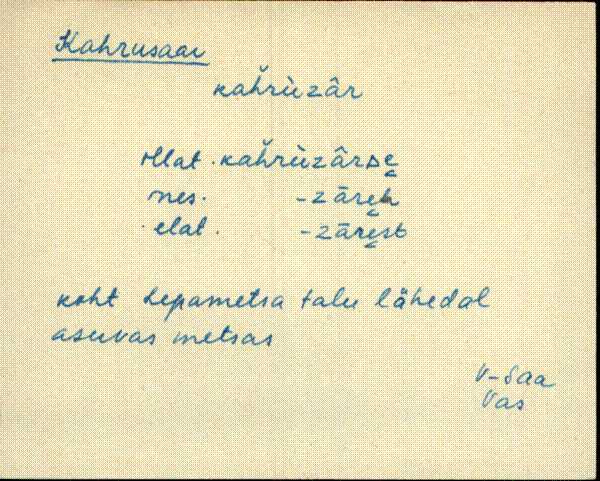 Kahrusaar
kaȟrùzâr
illat. kaȟrùzârᴅe̬
ines. -zāre̬h
elat. -zāre̬st
koht Lepametsa talu lähedal
asuvas metsas
V-Saa
Vas